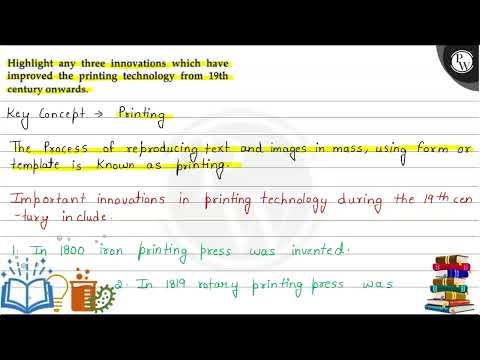 Highlight any three innovations which have
improved the printing technology from 19th
century onwards.
PW
Key Concept → Printing
The Process of reproducing text and images in mass, using form or
template is known as printing.
Important innovations in printing technology during the 19th cen
-tury include.
1. In 1800 iron printing press was invented.
2. In 1819 rotary printing press was